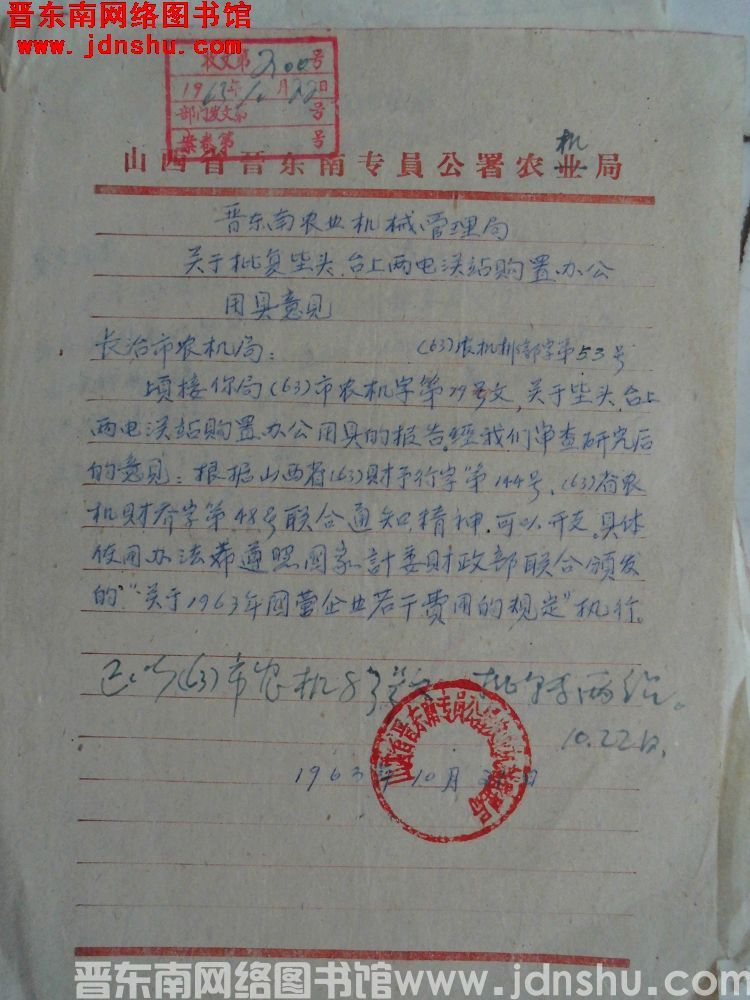 晋东南网络图书馆
www.jdnshu.com
收文第200号
1963年10月22日
部门发文第 号
案卷第 号
机
山西省晋东南专員公署农业局
晋东南农业机械管理局
关于批复垈头、台上两电灌站购置办公
用具意见
长治市农机局:
(63)农机排部字第53号
顷接你局(63)市农机字第79号文,关于垈头、台上
两电灌站购置办公用具的报告。经我们审查研究后
的意见:根据山西省(63)财予行字第144号、(63)省农
机财乔字第48号联合通知精神,可以开支。具体
使用办法希遵照国家計委财政部联合颁发
的“关于1963年国营企业若干费用的规定”执行。
已以(63)市农机8号文 批转两站。
10.22日.
1963年10月 日
山西省晋东南专員公署农业机械管理局
晋东南网络图书馆www.jdnshu.com